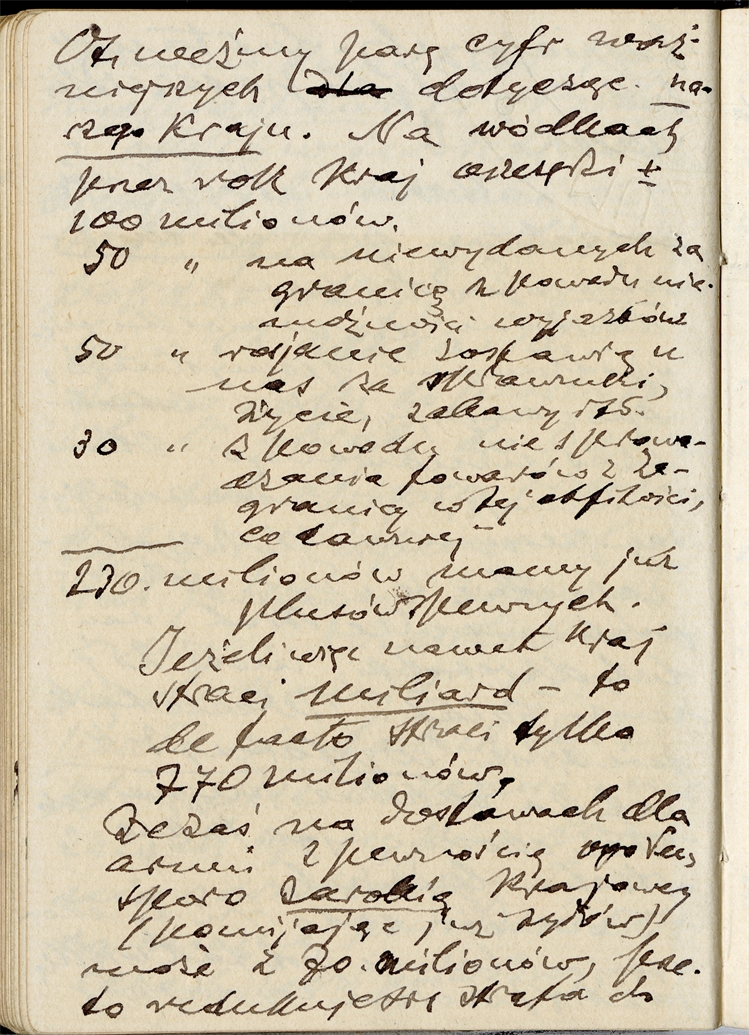 Ot, weźmy parę cyfr waż-
niejszych dla dotycząc. na-
szego Kraju. Na wódkach
przez rok Kraj oszczędzi ±
100 milionów.
50 " na niewydanych za
granicą z powodu nie-
możności wyjazdów
50 " rosjanie zostawią u
nas za sprawunki,
życie, zabawy itd.
30 " z powodu niesprowa-
dzania towarów z za-
granicy w tej obfitości,
co dawniej
230. milionów mamy już
plusów pewnych.
Jeżeli więc nawet Kraj
straci miliard – to
de facto straci tylko
770 milionów.
Że zaś na dostawach dla
armii z pewnością
sporo zarobią Krajowcy
(pomijając już żydów)
może z 70. milionów, prze-
to redukuje się strata do